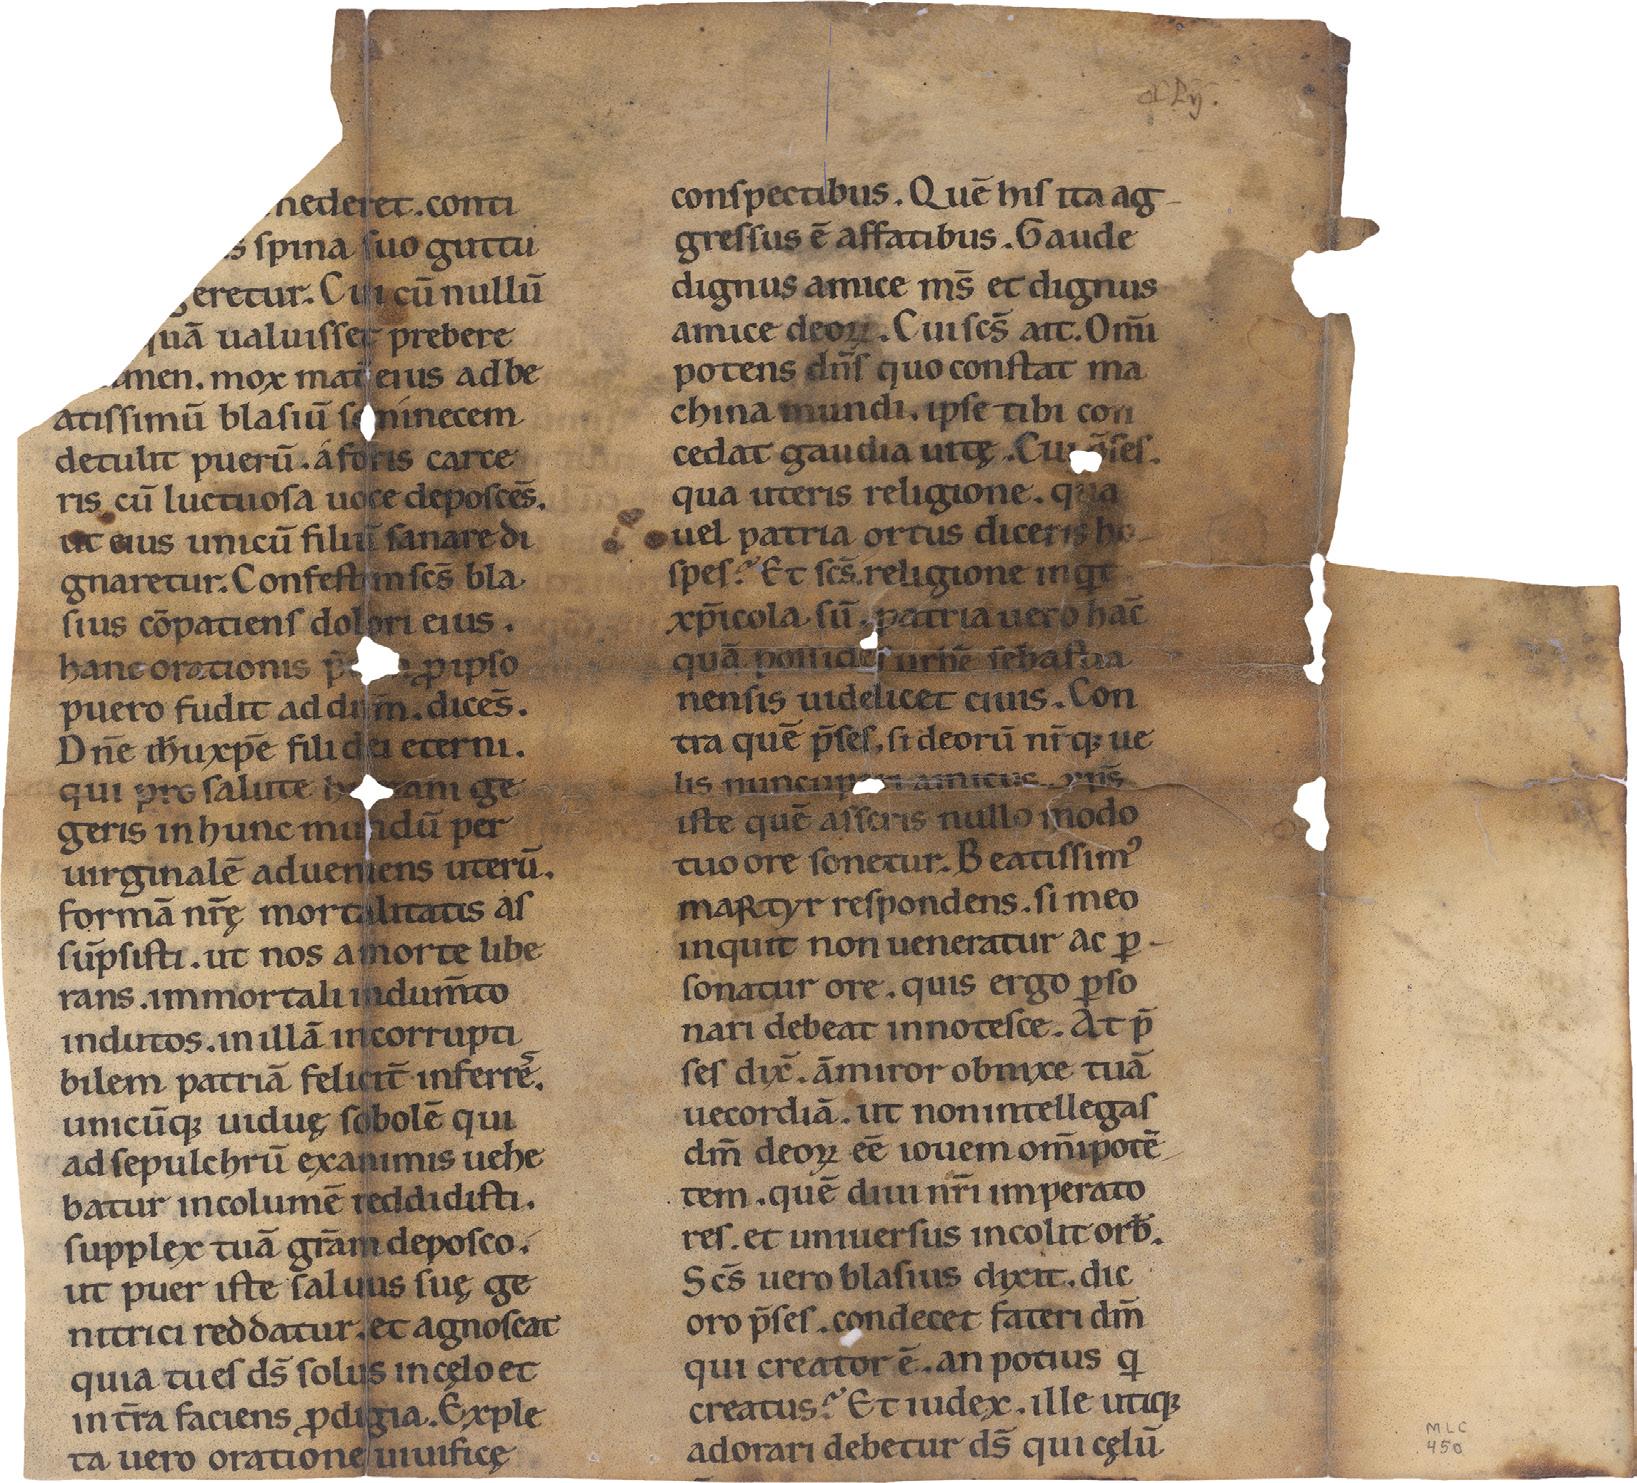 nederet. conti
s spina suo guttu
geretur. Cui cũ nullũ
quã ualuisset prebere
amen. mox mat̃ eius ad be
atissimũ blasiũ seminecem
detulit puerũ. á foris carce
ris cũ luctuosa uoce deposcẽs.
ut eius unicũ filiũ sanare di
gnaretur. Confestim scs̃ bla
sius cõpatiens dolori eius.
hanc orationis ꝓ ipso
puero fudit ad dñm. dicẽs.
Dñe ihũ xp̃e fili dei eterni.
qui pro salute ge
geris in hunc mundũ per
uirginalẽ adueniens uterũ.
formã nr̃ę mortalitatis as
sũpsisti. ut nos a morte libe
rans. immortali indum̃to
indutos. in illã incorrupti
bilem patriã felicit̃ inferrẽs.
unicũq; uiduę sobolẽ qui
ad sepulchrũ exanimis uehe
batur incolumẽ reddidisti.
supplex tuã gr̃am deposco.
ut puer iste saluus suę ge
nitrici reddatur. et agnoscat
quia tu es ds̃ solus in cęlo et
in tr̃a faciens ꝓdigia. Exple
ta uero oratione uiuificę
conspectibus. Quẽ his ita ag-
gressus ẽ affatibus. Gaude
dignus amice ms̃ et dignus
amice deoꝝ. Cui scs̃ ait. Om̃i
potens dñs quo constat ma
china mundi. ipse tibi con
cedat gaudia uitę. Cui p̃ses.
qua uteris religione. qua
uel patria ortus diceris ho-
spes? Et scs̃. religione inq̇t
xp̃icola sũ. patria uero hac̃
quã possides urbẽ sebastia
nensis uidelicet ciuis. Con
tra quẽ p̃ses. si deorũ nr̃iq; ue
lis nuncupari amicus. xp̃s
iste quẽ asseris nullo modo
tuo ore sonetur. Beatissimꝰ
maRtyr respondens. si meo
inquit non ueneratur ac ꝑ-
sonatur ore. quis ergo ꝑso
nari debeat innotesce. At p̃
ses dix̃. ãmiror obnixe tuã
uecordiã. ut non intellegas
dm̃ deoꝝ eẽ iouem om̃ipotẽ-
tem. quẽ diui nr̃i imperato
res. et uniuersus incolit orb̃.
Scs̃ uero blasius dixit. dic
oro p̃ses. condecet fateri dm̃
qui creator ẽ. an potius q̇
creatus? Et iudex. ille utiq;
adorari debetur ds̃ qui cęlũ
MLC
450